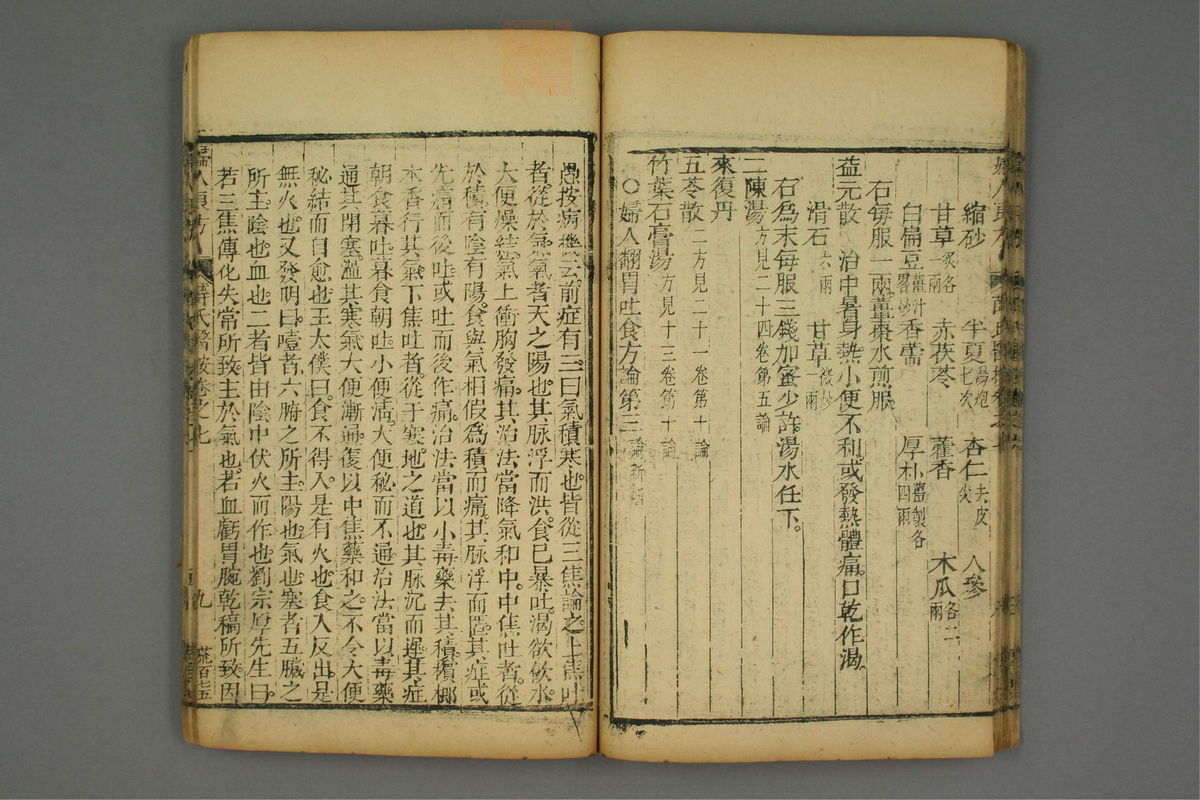 縮砂　半夏湯炮七次　杏仁去皮尖　人參
甘草炙各一兩　赤茯苓　藿香　木瓜各二兩
白扁豆薑汁畧炒　香薷　厚朴薑製各四兩
右每服一兩薑棗水煎服
益元散　治中暑身熱小便不利或發熱體痛口乾作渴。
滑石六兩　甘草微炒一兩
右爲末每服三錢加蜜少許湯水任下。
二陳湯方見二十四卷第五論
來復丹
五苓散二方見二十一卷第十論
竹葉石膏湯方見十三卷第十論
○婦人翻胃吐食方論第三論新
愚按病機云前症有三曰氣積寒也皆從三焦論之上焦吐
者從於氣氣者天之陽也其脉浮而洪食已暴吐渴欲飲水
大便燥結氣上衝胸發痛其治法當降氣和中中焦吐者從
於積有陰有陽食與氣相假爲積而痛其脉浮而匿其症或
先痛而後吐或吐而後作痛治法當以小毒藥去其積檳榔
木香行其氣下焦吐者從于寒地之道也其脉沉而遲其症
朝食暮吐暮食朝吐小便清大便秘而不通治法當以毒藥
通其閉塞溫其寒氣大便漸通復以中焦藥和之不令大便
秘結而自愈也王太僕曰食不得入是有火也食入反出是
無火也又發明曰噎者六腑之所主陽也氣也塞者五臟之
所主陰也血也二者皆由陰中伏火而作也劉宗厚先生曰
若三焦傳化失常所致主於氣也若血虧胃脘乾稿所致因
婦人良方　薛氏醫按卷之七　九